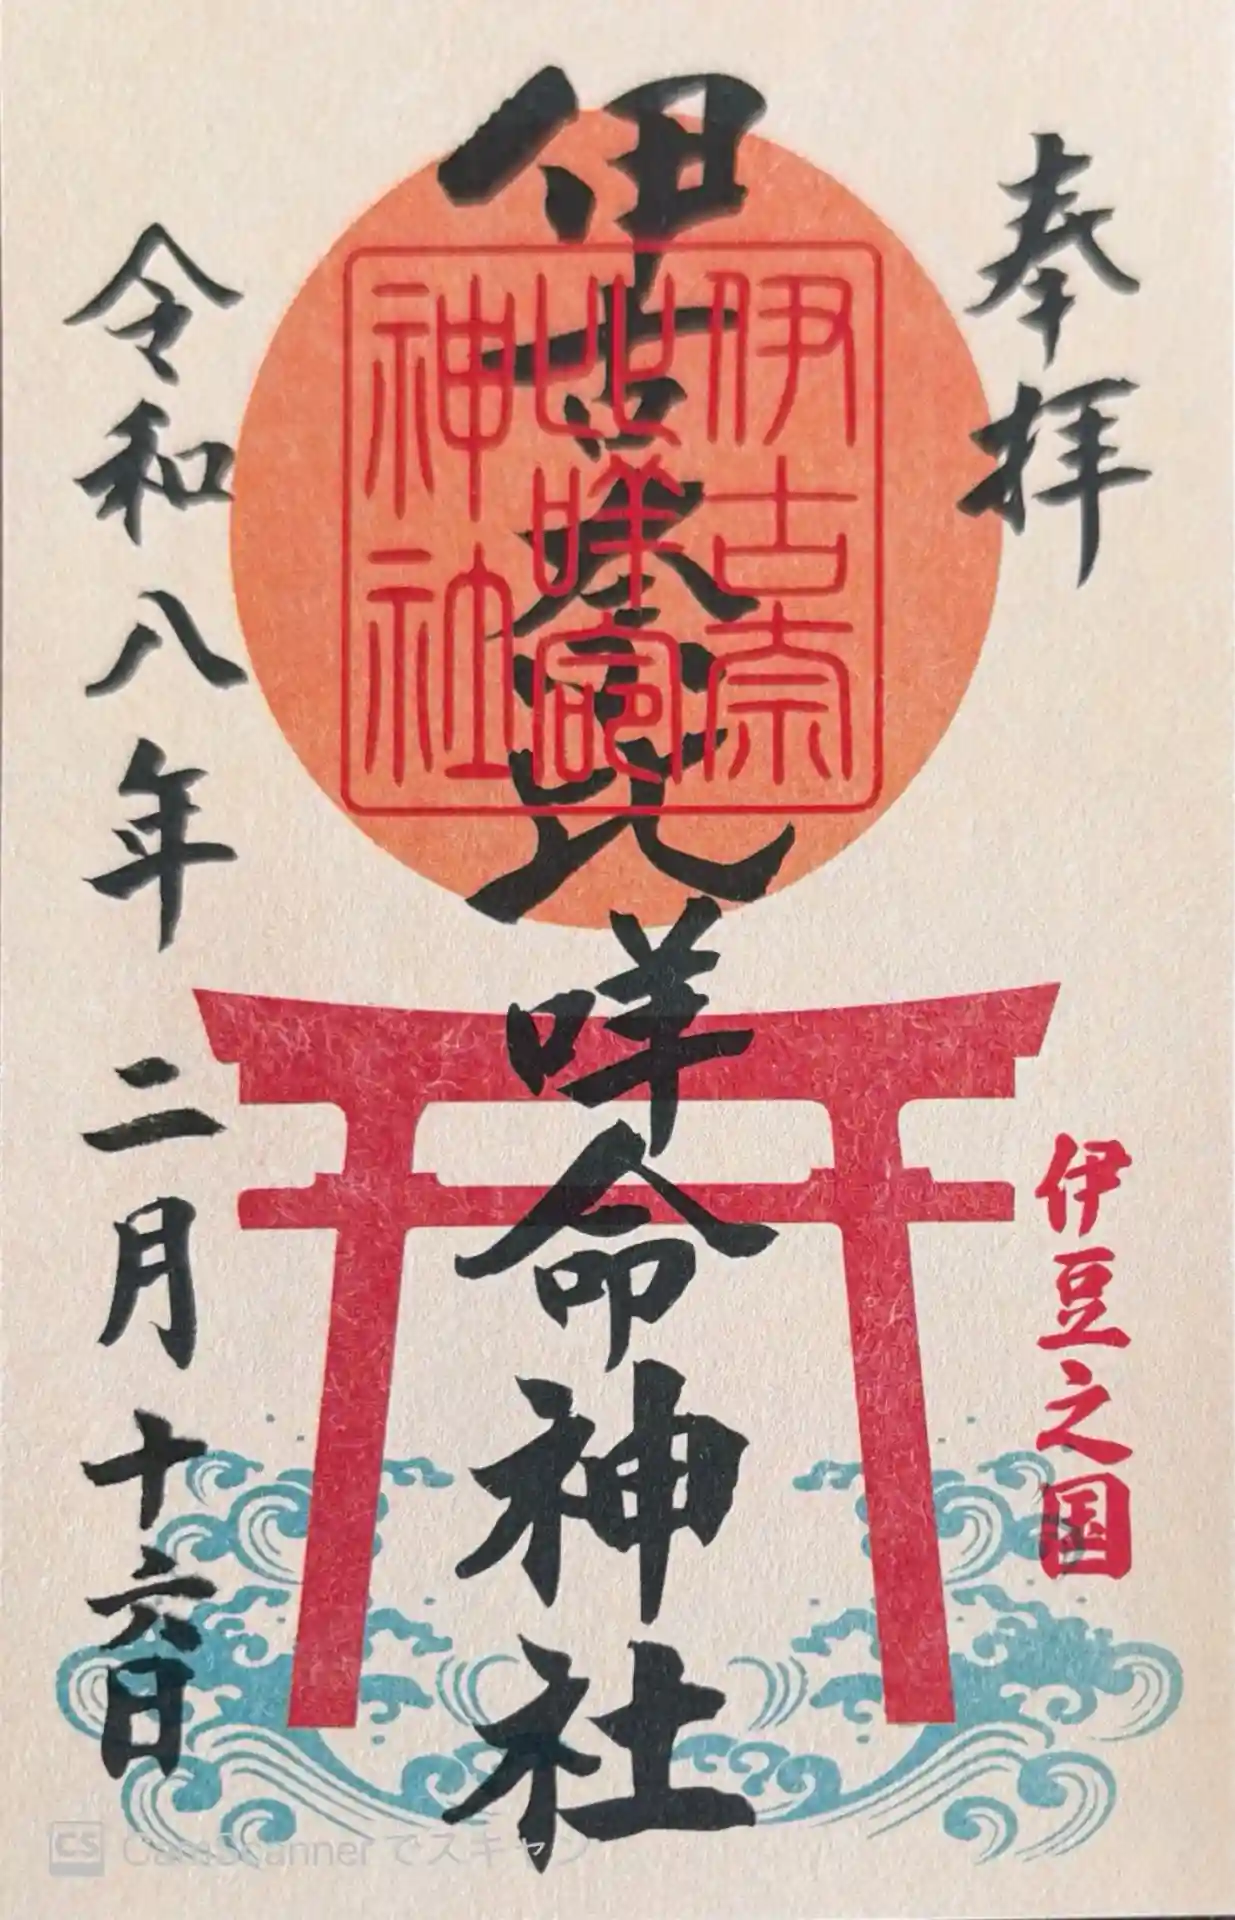 奉拝
伊豆之国
伊古奈比咩命神社
伊古奈
比咩命
神社
令和八年二月十六日
CS CamScannerでスキャン